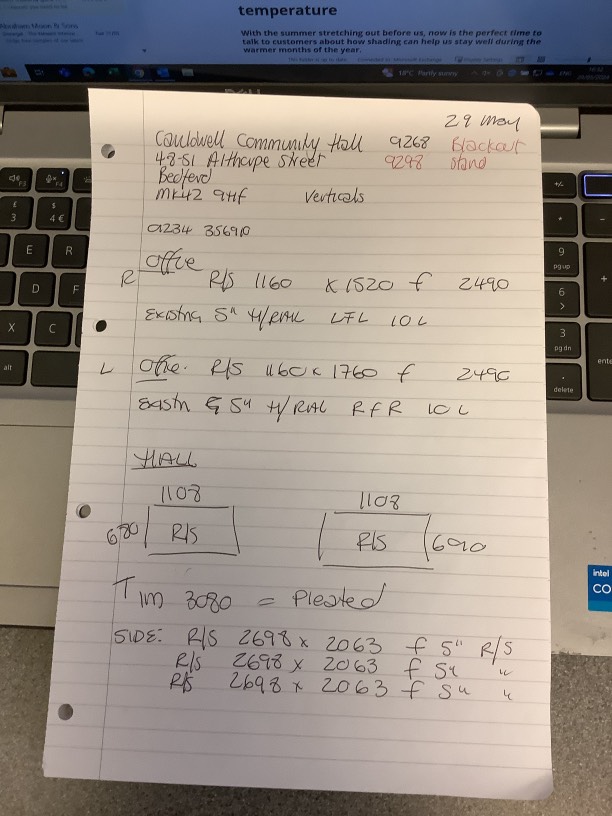 temperature
With the summer stretching out before us, now is the perfect time to
talk to customers about how shading can help us stay well during the
warmer months of the year.
18°C Partly sunny
DELL
29 May
Cauldwell Community Hall 9268 Blackout
48-51 Althorpe Street 9298 Stand
Bedford
MK42 9HF Verticals
01234 356910
Office
R R/S 1160 x 1520 f 2490
Existing 5" H/RAIL LFL 10L
L Office. R/S 1160 x 1760 f 2490
Existn G 5" H/RAL RFR 10L
HALL
1108 1108
680 R/S R/S 690
Tim 3080 = Pleated
SIDE: R/S 2698 x 2063 f 5" R/S
R/s 2698 x 2063 f 5" "
R/S 2698 x 2063 f 5" "
F3
F4
£
3
$
4 €
E
R
D
F
X
C
alt
+/-
*
-
9
pg up
+
6
>
3
pg dn
enter
.
delete
intel
CO